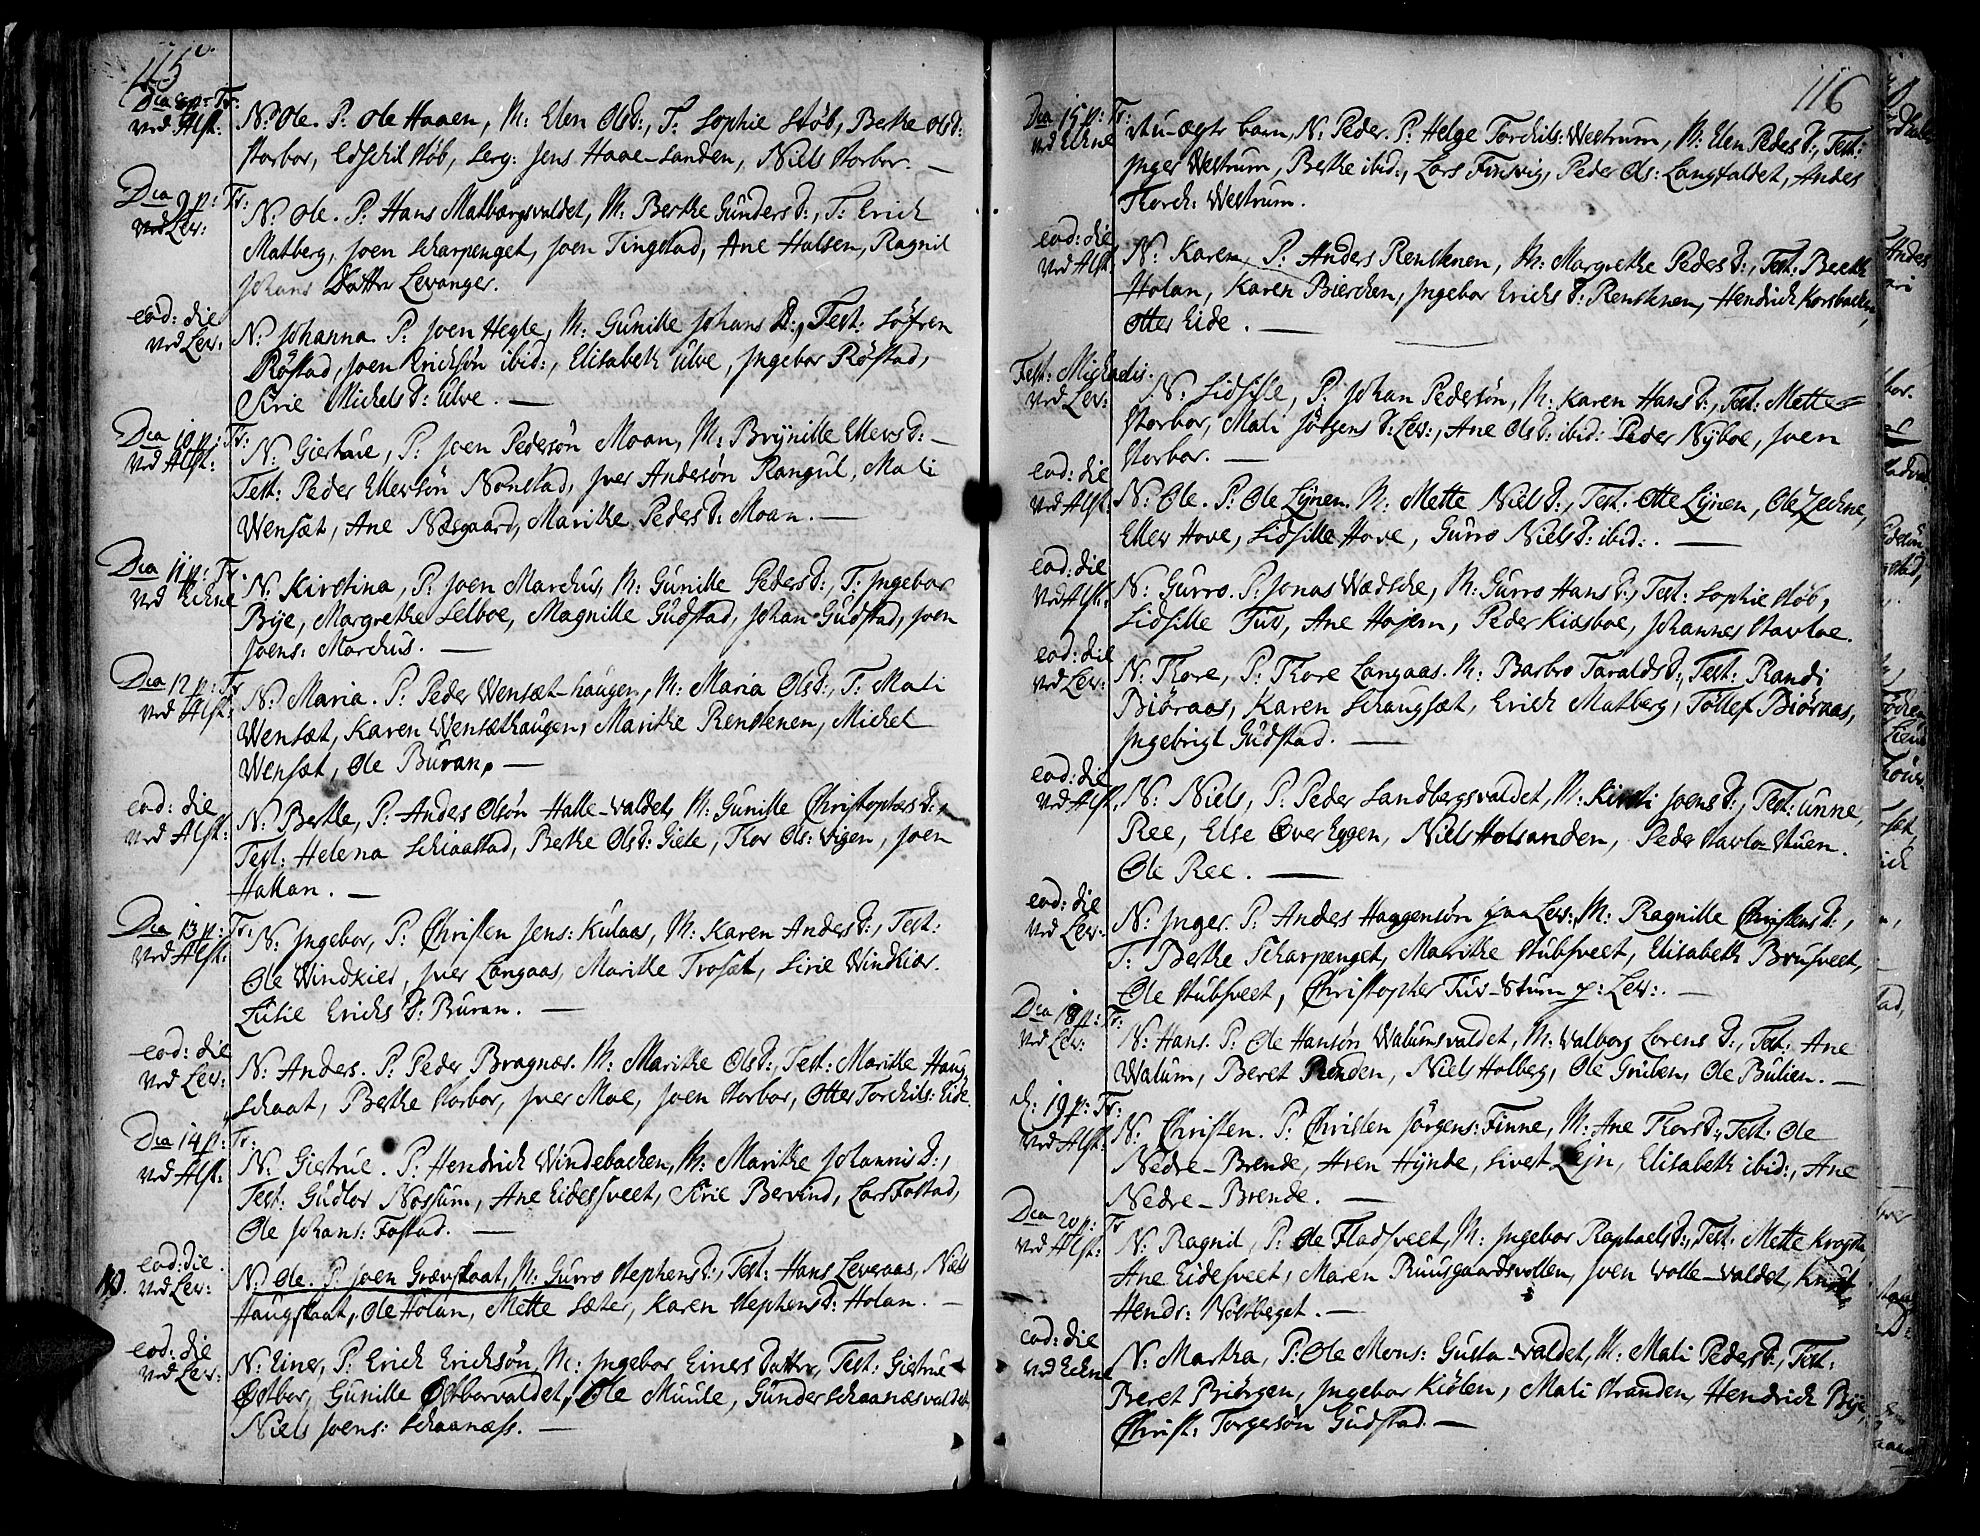 115
Dca 8 p: Tr:
ved Alst:
N: Ole. P: Ole Haaen, M: Elen Ols D:, T: Sophie Støb, Berthe Ols D:
Storbor, Edschil Støb, Serg: Jens Haae-Sanden, Niels Storbor. —
Dca 9 p: Tr:
ved Lev:
N: Ole. P: Hans Matbergsvaldet, M: Berthe Gunders D:, T: Erich
Matberg, Joen Scharpenget, Joen Tingstad, Ane Halsen, Ragnil
Johans Datter Levanger.
eod: die
ved Lev:
N: Johanna. P: Joen Hegle, M: Gunille Johans D:, Test: Søfren
Røstad, Joen Erichsøn ibid:, Elisabeth Ulve, Ingebor Røstad,
Sirie Michels D: Ulve. —
Dca 10 p: Tr:
ved Alst:
N: Giertrue, P: Joen Pedersøn Moan, M: Brynille Ellevs D: —
Test: Peder Ellevsøn Nonstad, Iver Andersøn Rangul, Mali
Wensæt, Ane Næsgaard, Marithe Peders D: Moan. —
Dca 11 p: Tr.
ved Echne
N: Kirstina, P: Joen Marchus, M: Gunille Peders D:, T: Ingebor
Bye, Margrethe Selboe, Magnille Gudstad, Johan Gudstad, Joen
Joens: Marchus. —
Dca 12 p: Tr
ved Alst:
N: Maria. P: Peder Wensæt-haugen, M: Maria Ols D:, T: Mali
Wensæt, Karen Wensæthaugen, Marithe Renstenen, Michel
Wensæt, Ole Buran. —
eod: die
ved Alst:
N: Berthe, P: Anders Olsøn Halle-valdet, M: Gunille Christophers D:
Test: Helena Schiaastad, Berthe Ols D: Giete, Thor Ols: Vigen, Joen
Hallan. —
Dca 13 p: Tr:
ved Alst:
N: Ingebor, P: Christen Jens: Kulaas, M: Karen Anders D:, Test:
Ole Windkier, Iver Langaas, Marithe Trosæt, Sirie Windkier.
Zidsie Erichs D: Buran. —
eod: die
ved Lev:
N: Anders. P: Peder Bragnær. M: Marithe Ols D:, Test: Marithe Haug
schaat, Berthe Storbor, Iver Moe, Joen Storbor, Otter Torchils: Eide.
Dca 14 p: Tr:
ved Alst:
N: Giertrue. P: Hendrich Windebachen, M: Marithe Johannis D:,
Test: Gudlov Nossum, Ane Eidesveet, Sirie Bervind, Lars Fostad,
Ole Johans: Fostad. —
eod: die.
ved Lev:
N: Ole. P: Joen Grævskaat, M: Gurro Stephens D:, Test: Hans Leveraas, Niels
Haugskaat, Ole Hølan, Mette Sæter, Karen Stephens D: Holan. —
eod: die
ved Lev:
N: Einer, P: Erich Erichsøn, M: Ingebor Einers Datter, Test: Giertrue
Østbor, Gunille Østborvaldet, Ole Muule, Gunder Schaanæsvaldet,
Niels Joens: Schaanæss. —
116
Dca 15 p: Tr:
ved Echne
et u-ægte barn, N: Peder. P: Helge Torchils: Westrum, M: Elen Peders D:, Test:
Inger Westrum, Berthe ibid:, Lars Finsvig, Peder Ols: Langfaldet, Anders
Thorch: Westrum.
eod: die
ved Alst:
N: Karen, P: Anders Renstenen, M: Margrethe Peders D:, Test: Berethe
Holan, Karen Bierchen, Ingebor Erichs D: Renstenen, Hendrich Korsbachen,
Otter Eide. —
Fest: Michaelis.
ved Lev:
N: Sidsille, P: Johan Pedersøn, M: Karen Hans D:, Test: Mette
Storbor, Mali Jørgens D: Lev:, Ane Ols D: ibid: Peder Nyboe, Joen
Storbor. —
eod: die
ved Alst:
N: Ole. P: Ole Lynen. M: Mette Niels D:, Test: Otte Lynen, Ole Zechne,
Ellev Hove, Sidsille Hove, Gurro Niels D: ibid:. —
eod: die
ved Alst:
N: Gurro. P: Jonas Wædsche, M: Gurro Hans D:, Test: Sophie Støb,
Sidsille Tuv, Ane Hojem, Peder Kiesboe, Johannes Stavloe.
eod: die
ved Lev:
N: Thore, P: Thore Langaas. M: Barbro Taralds D:, Test: Randi
Biøraas, Karen Schaugsæt, Erich Matberg, Tollef Biøraas,
Ingebrigt Gudstad. —
eod: die
ved Alst.
N: Niels, P: Peder Sandbergsvaldet, M: Kirsti Joens D:, Test: Unne,
Ree, Else Over Eggen, Niels Holsanden, Peder Stavloe Stuen.
Ole Ree. —
eod: die
ved Lev:
N: Inger. P: Anders Haggensøn paa Lev:, M: Ragnille Christens D:,
T: Berthe Scharpenget, Marithe Stubsveet, Elisabeth Brusveet,
Ole Stubsveet, Christopher Tuv-Stuen p: Lev:. —
Dca 18 p: Tr:
ved Lev:
N: Hans. P: Ole Hansøn Walumsvaldet, M: Walborg Lorens D:, Test: Ane
Walum, Beret Rinden, Niels Holberg, Ole Gruben, Ole Bulien. —
d: 19 p: Tr:
ved Alst:
N: Christen. P: Christen Jørgens: Finne, M: Ane Thors D:, Test: Ole
Nedre-Brende, Aren Hynde, Sivert Lejn, Elisabeth ibid:, Ane
Nedre-Brende. —
Dca 20 p: Tr
ved Alst:
N: Ragnil, P: Ole Fladsveet, M: Ingebor Raphaels D:, Test: Mette
Ane Eidesveet, Maren Ruusgaardsvollen, Joen Volle-valdet, Knut
Hendr: Norberget. —
eod: die
ved Echne
N: Martha, P: Ole Mons: Gusta-valdet, M: Mali Peders D:, Test:
Beret Biørgen, Ingebor Kiølen, Mali Stranden, Hendrich Bye,
Christ: Torgersøn Gudstad. —